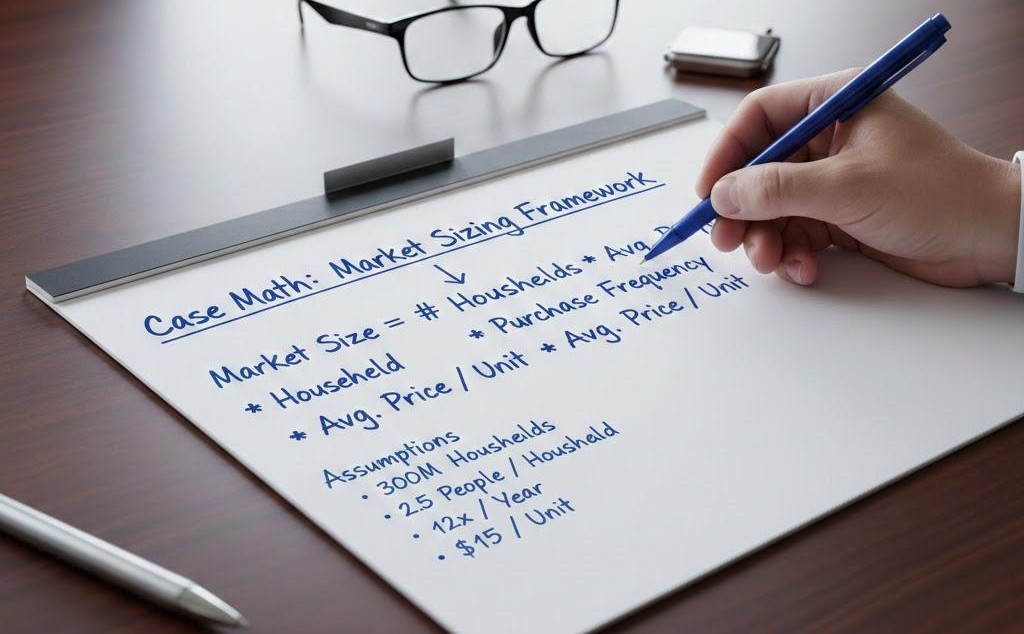 Case Math: Market Sizing Framework
Market Size = # Houshelds * Avg
* Househeld * Purchase Frequency
* Avg. Price / Unit * Avg. Price / Unit
Assumptions
• 300M Housheilds
• 2.5 People / Housheld
• 12x / Year
• $15 / Unit